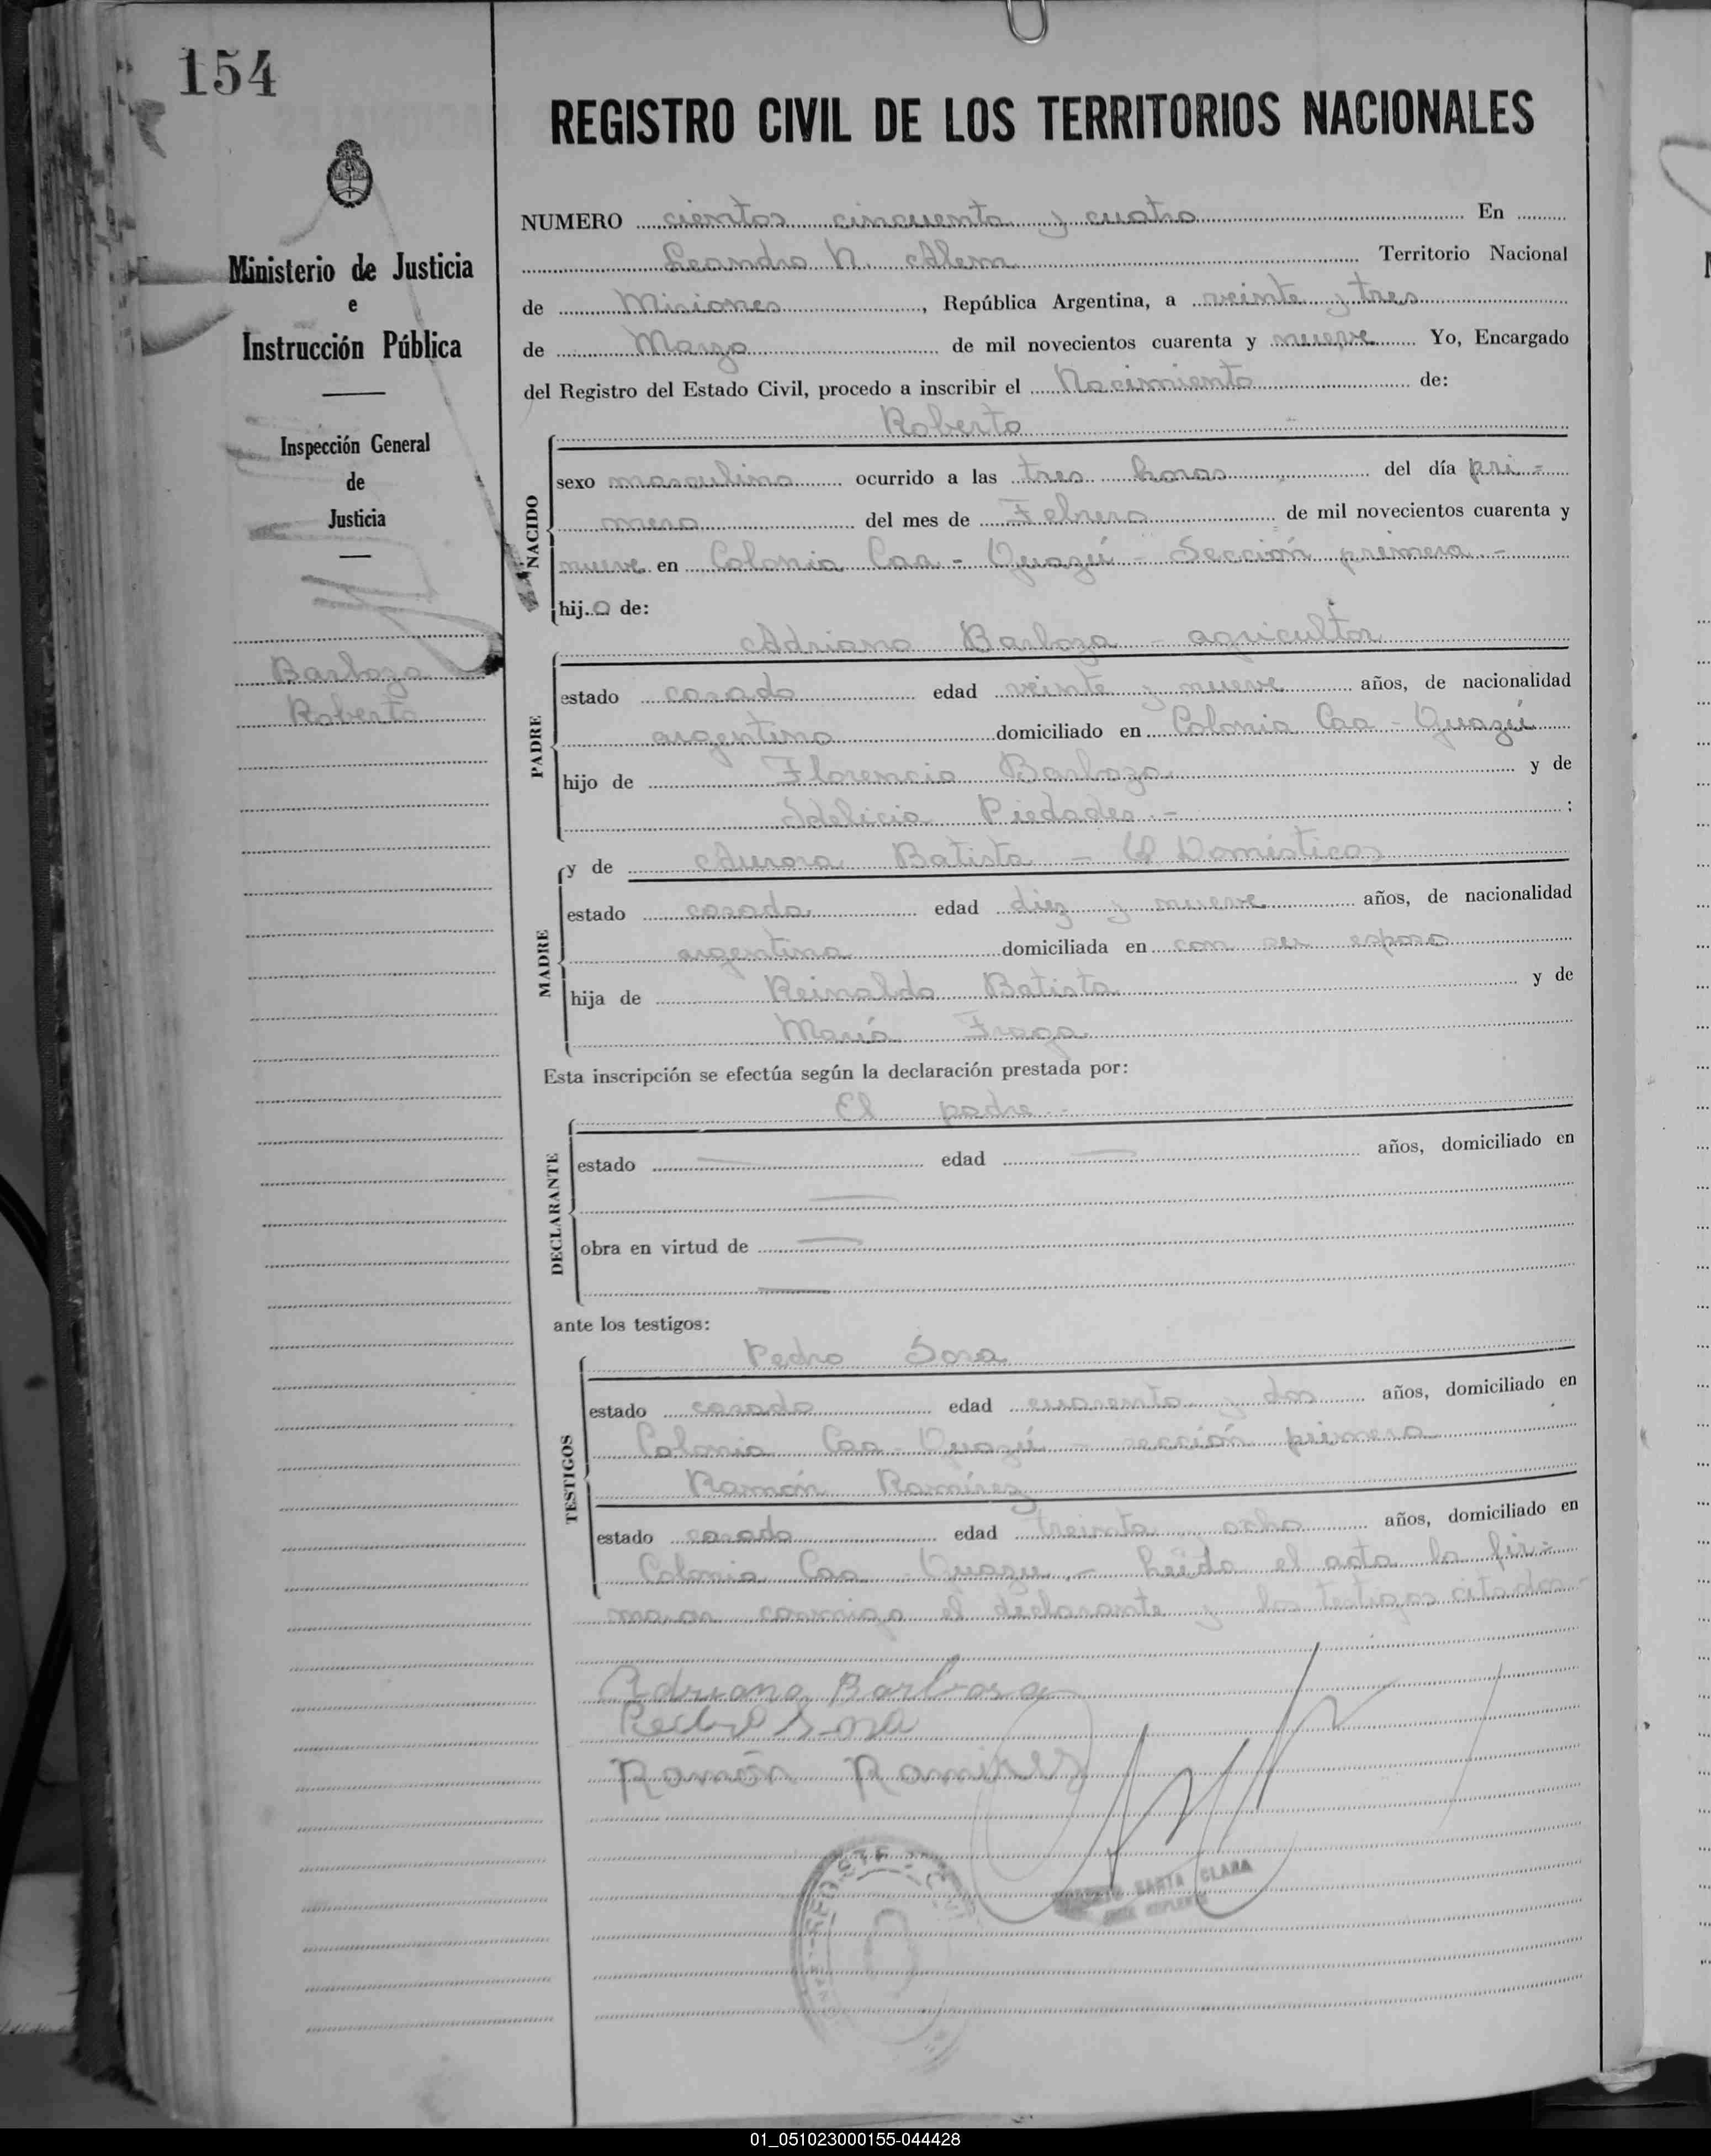 154
REGISTRO CIVIL DE LOS TERRITORIOS NACIONALES
Ministerio de Justicia
e
Instrucción Pública
Inspección General
de
Justicia
Barboza
Roberto
NUMERO cientos cincuenta y cuatro En
Leandro N. Alem Territorio Nacional
de Misiones, República Argentina, a veinte y tres
de Marzo de mil novecientos cuarenta y nueve Yo, Encargado
del Registro del Estado Civil, procedo a inscribir el Nacimiento de:
Roberto
NACIDO
sexo masculino ocurrido a las tres horas del día pri-
mero del mes de Febrero de mil novecientos cuarenta y
nueve en Colonia Caa-Guazú - Sección primera.-
hijo de:
Adriano Barboza - agricultor
PADRE
estado casado edad veinte y nueve años, de nacionalidad
argentino domiciliado en Colonia Caa-Guazú
hijo de Florencio Barboza y de
Idelicia Piedades.- :
MADRE
y de Aurora Batista - Q Domésticos
estado casada edad diez y nueve años, de nacionalidad
argentina domiciliada en con su esposo
hija de Reinaldo Batista y de
María Fraga
Esta inscripción se efectúa según la declaración prestada por:
El padre.-
DECLARANTE
estado edad años, domiciliado en
obra en virtud de
ante los testigos:
Pedro Sosa
TESTIGOS
estado casado edad cuarenta y dos años, domiciliado en
Colonia Caa-Guazú - sección primera
Ramón Ramírez
estado casado edad treinta y ocho años, domiciliado en
Colonia Caa Guazu.- Leída el acta la fir-
maron conmigo el declarante y los testigos citados-
Adriano Barbosa
Pedro Sosa
Ramón Ramirez
SANTA CLARA
01_051023000155-044428